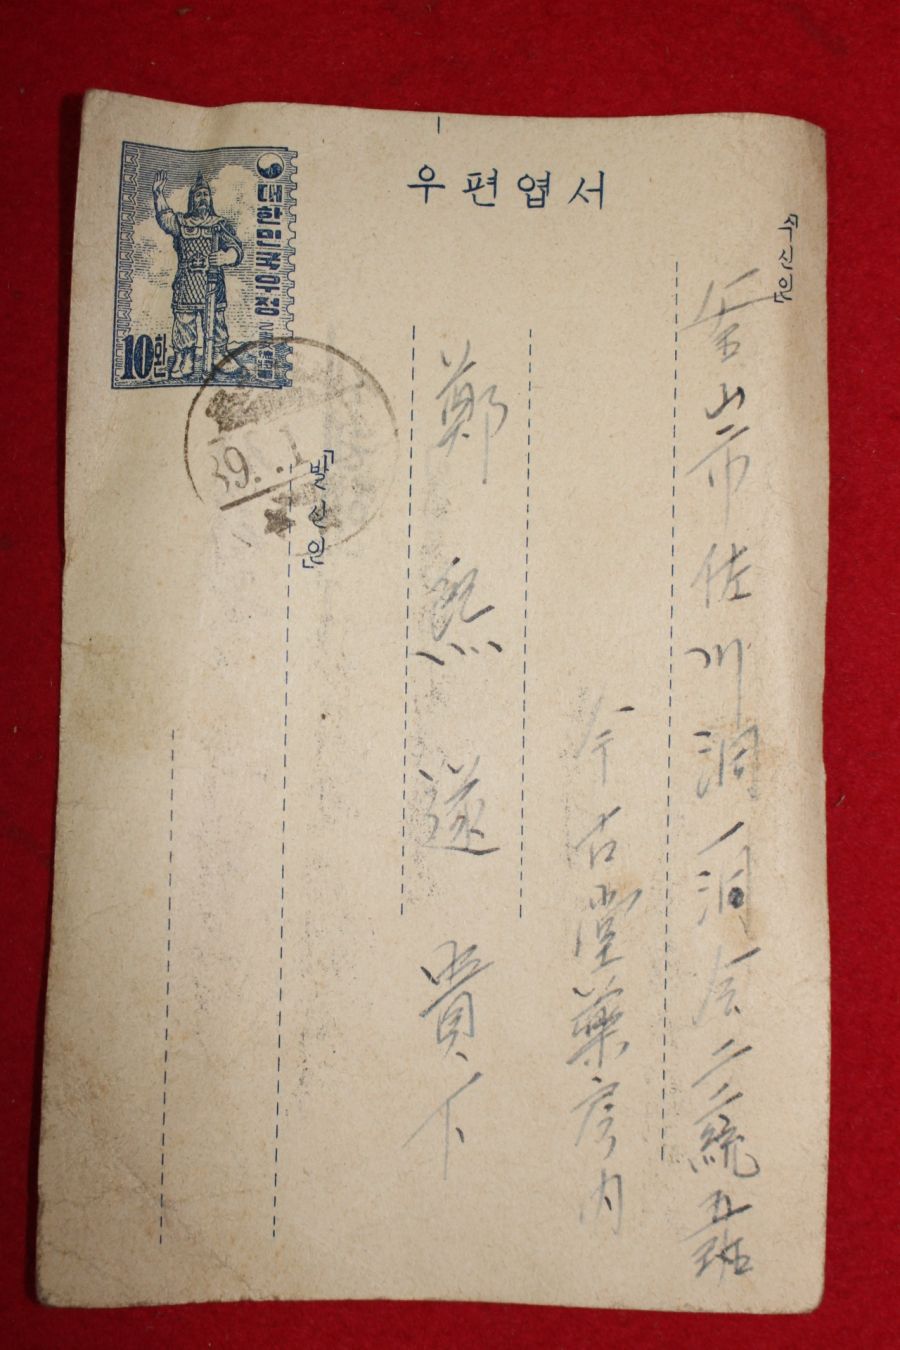 우편엽서
대한민국우정
10환
39. .1
「수신인」
釜山市佐川洞一洞会二二統五班
今古堂薬房内
鄭 熙 遂 貴下
「발신인」